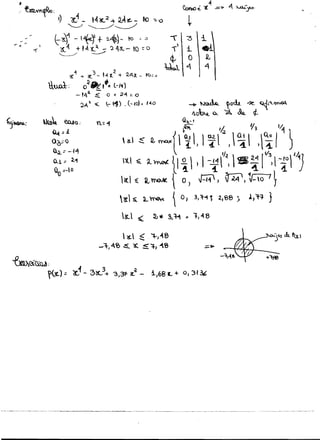 * Exemplo:
1) x⁴ - 14x² + 24x - 10 = 0
Como é x⁴ => 4 raízes
(-x)⁴ - 14(-x)² + 24(-x) - 10 = 0
x⁴ + 14x² - 24x - 10 = 0
T 3 1
T' 1 1
¢ 0 2
total 4 4
x⁴ - x³ - 14x² + 24x - 10 = 0
Huat: 0² 1 * (-14)
-14² ≤ 0 * 24 = 0
24² < (-14) . (-10) = 140
→ Nada pode se afirmar sobre a ∃ de ¢
Neste caso: n = 4
a₄ = 1
a₃ = 0
a₂ = -14
a₁ = 24
a₀ = -10
|x| ≤ 2 max
|x| ≤ 2 max { |0/1|, |-14/1|^1/2, |24/1|^1/3, |-10/1|^1/4 }
|x| ≤ 2 max { 0, √-14, ∛24, ∜-10 }
|x| ≤ 2 max { 0, 3,74; 2,88; 1,77 }
|x| ≤ 2 * 3,74 = 7,48
|x| ≤ 7,48
-7,48 ≤ x ≤ 7,48 =>
raízes de P(x)
-7,48 +7,48
Exercícios:
P(x) = x⁴ - 3x³ + 3,37x² - 1,68x + 0,3136